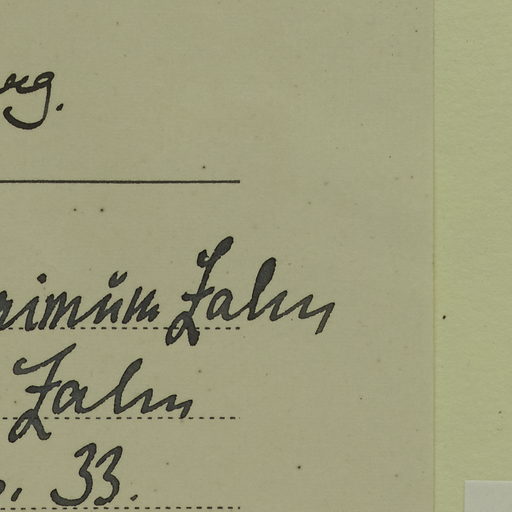 rg.
rimum Zahn
Zahn
. 33.